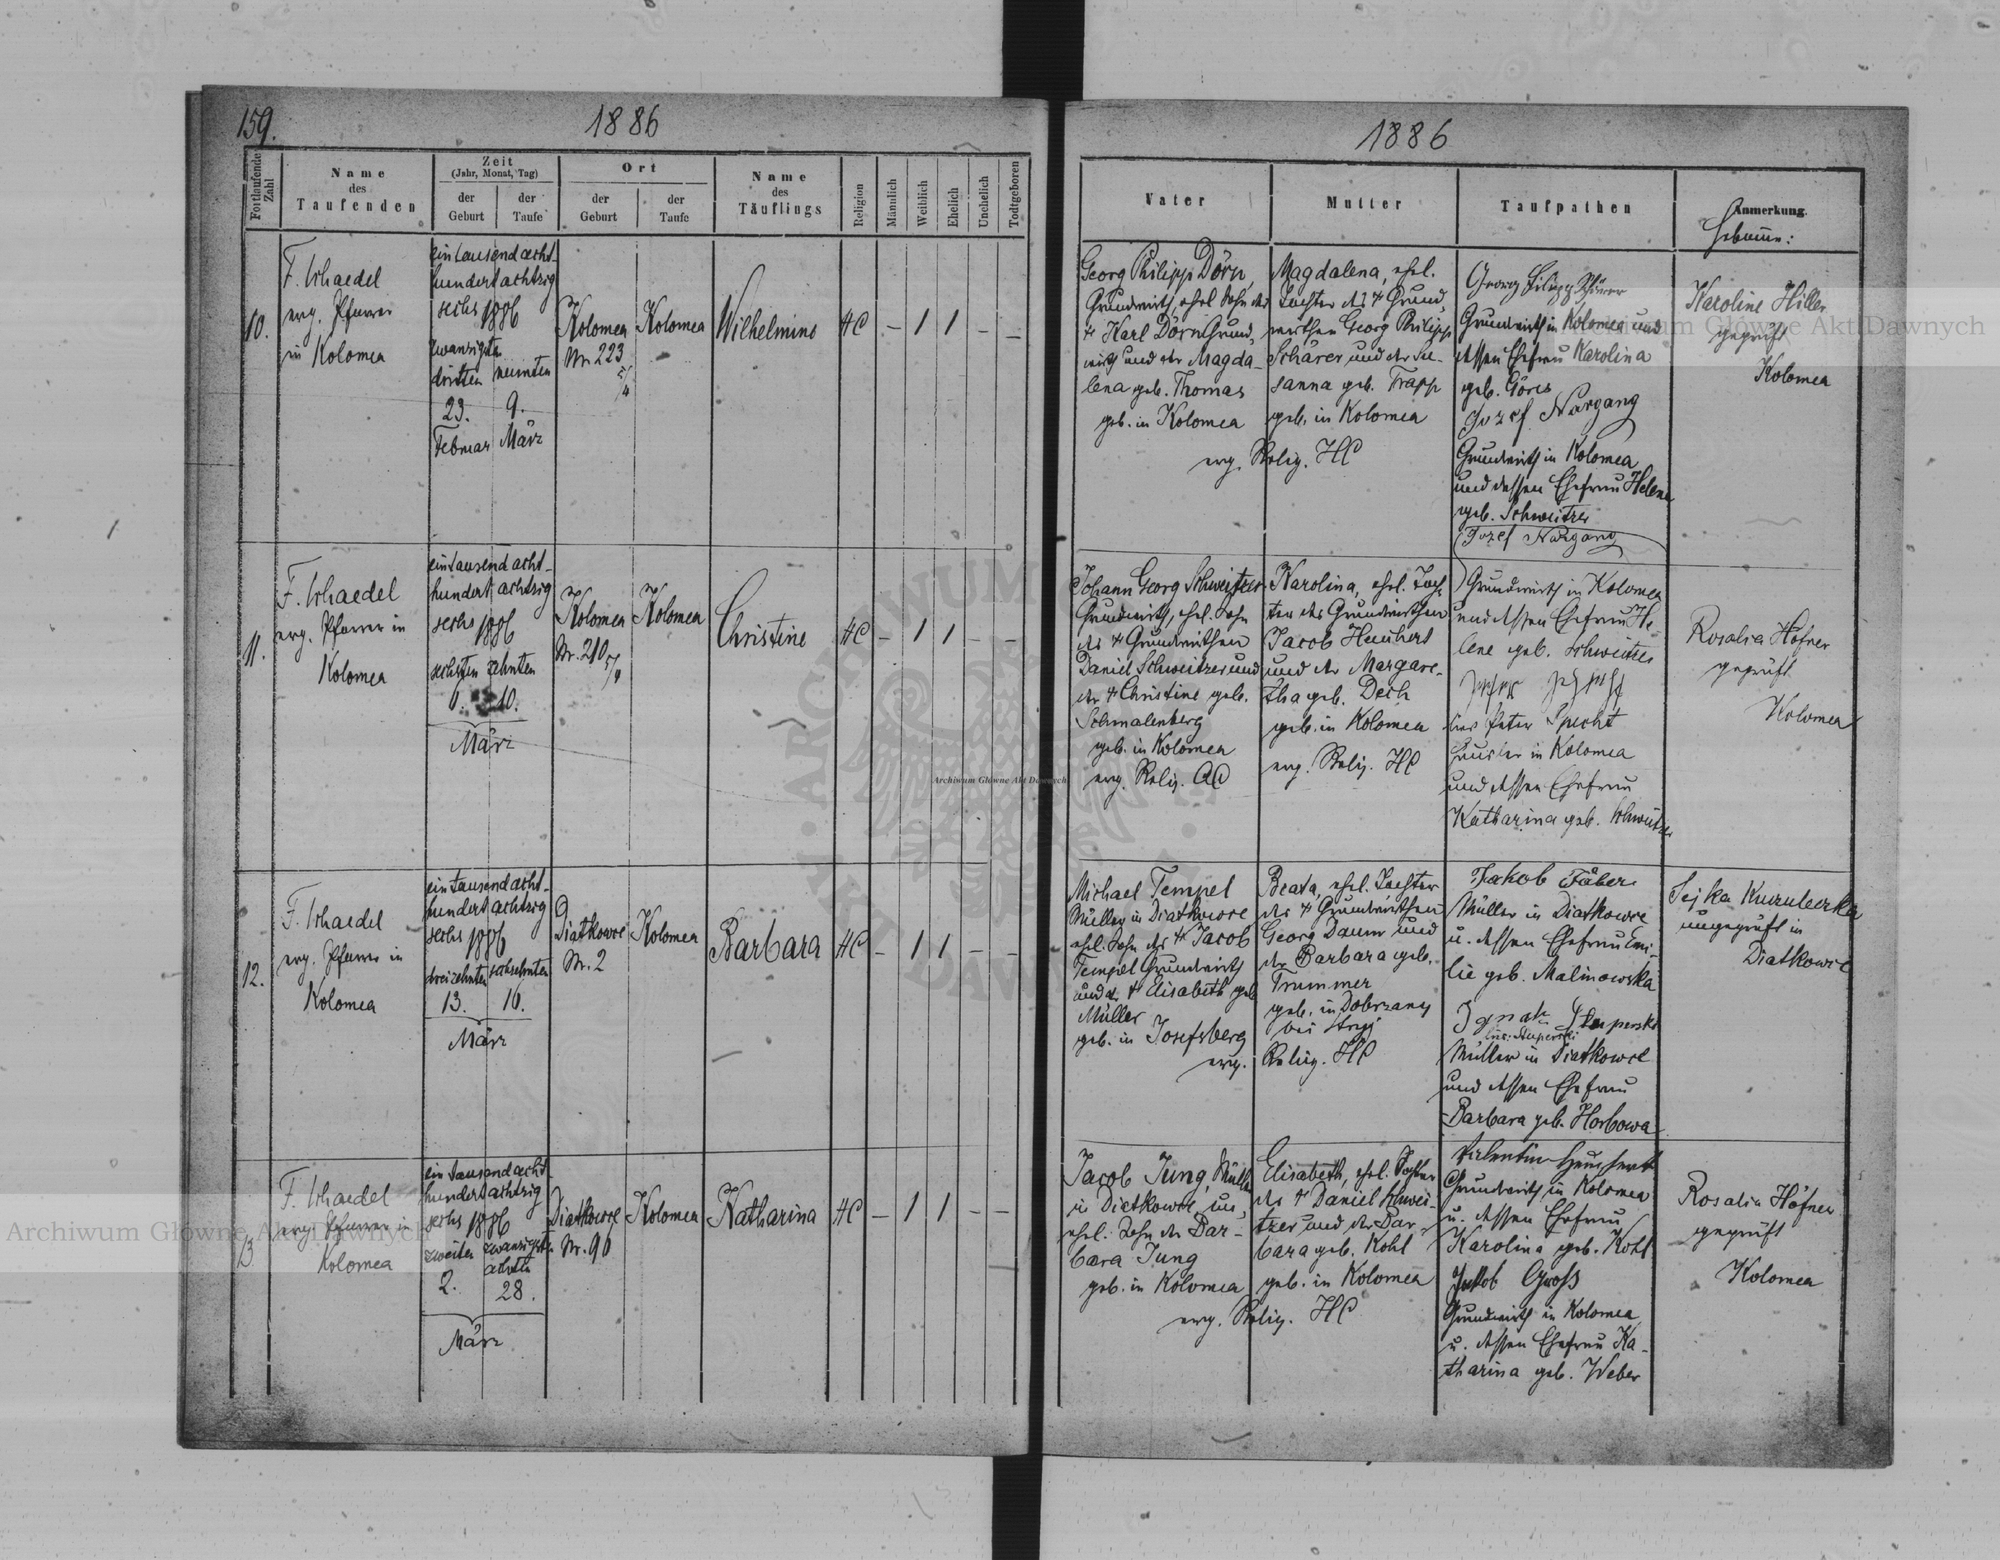 159.
1886
Fortlaufende Zahl
Name
des
Taufenden
Zeit
(Jahr, Monat, Tag)
der
Geburt
der
Taufe
Ort
der
Geburt
der
Taufe
Name
des
Täuflings
Religion
Männlich
Weiblich
Ehelich
Unehelich
Todtgeboren
10.
F. Schaedel
evg. Pfarrer
in Kolomea
ein tausend acht-
hundert achtzig
sechs 1886
zwanzigsten
dritten neunten
23. 9.
Februar März
Kolomea
Nr. 223
Kolomea
Wilhelmine
HC - 1 1 - -
11.
F. Schaedel
evg. Pfarrer in
Kolomea
ein tausend acht-
hundert achtzig
sechs 1886
sechsten zehnten
6. 10.
März
Kolomea
Nr. 210
Kolomea
Christine
HC - 1 1 - -
12.
F. Schaedel
evg. Pfarrer in
Kolomea
ein tausend acht-
hundert achtzig
sechs 1886
dreizehnten sechzehnten
13. 16.
März
Diatkowce
Nr. 2
Kolomea
Barbara
HC - 1 1 - -
13
F. Schaedel
evg. Pfarrer in
Kolomea
ein tausend acht-
hundert achtzig
sechs 1886
zweiten zwanzigsten
achten
2. 28.
März
Diatkowce
Nr. 90
Kolomea
Katharina
HC - 1 1 - -
1886
Vater
Mutter
Taufpathen
Anmerkung.
Hebamme:
Georg Philipp Dörn,
Grundwirth, ehel. Sohn des
† Karl Dörn Grund-
wirth und der Magda-
lena geb. Thomas
geb. in Kolomea
Magdalena, ehel.
Tochter des † Grund
wirthen Georg Philipp
Schärer und der Su-
sanna geb. Trapp
geb. in Kolomea
evg. Relig. HC
Georg Filipp
Grundwirth in Kolomea und
dessen Ehefrau Karolina
geb. Göres
Jozef Nargang
Grundwirth in Kolomea
und dessen Ehefrau Helene
geb. Schweitzer
Karoline Hiller
geprüft
Kolomea
Jozef Nargang
Johann Georg Schweitzer
Grundwirth, ehel. Sohn
des † Grundwirthen
Daniel Schweitzer und
der † Christine geb.
Schmalenberg
geb. in Kolomea
evg. Relig. AC
Karolina, ehel. Toch-
ter des Grundwirthen
Jacob Heuchert
und der Margare-
tha geb. Desch
geb. in Kolomea
evg. Relig. HC
Grundwirth in Kolomea
und dessen Ehefrau He-
lene geb. Schweitzer
Peter Specht
Häusler in Kolomea
und dessen Ehefrau
Katharina geb. Schweitzer
Rosalia Höfner
geprüft
Kolomea
Michael Tempel
Müller in Diatkowce
ehel. Sohn des † Jacob
Tempel Grundwirth
und der † Elisabeth geb
Müller
geb. in Josefsberg
Beata, ehel. Tochter
des † Grundwirthen
Georg Daum und
der Barbara geb.
Trummer
geb. in Dobrzany
bei Stryj
evg. Relig. HC
Jakob Faber
Müller in Diatkowce
u. dessen Ehefrau Emi-
lie geb. Malinowska
Müller in Diatkowce
und dessen Ehefrau
Barbara geb. Horbowa
ungeprüft in
Diatkowce
Jacob Jung, Müller
in Diatkowce
ehel. Sohn der Bar-
bara Jung
geb. in Kolomea
Elisabeth, ehel. Tochter
des † Daniel Schwei-
tzer und der Bar-
bara geb. Kohl
geb. in Kolomea
evg. Relig. HC
Valentin Heuchert
Grundwirth in Kolomea
u. dessen Ehefrau
Karolina geb. Kohl
Jakob Groß
Grundwirth in Kolomea
u. dessen Ehefrau Ka-
tharina geb. Weber
Rosalia Höfner
geprüft
Kolomea
Archiwum Główne Akt Dawnych
Archiwum Główne Akt Dawnych
Archiwum Główne Akt Dawnych